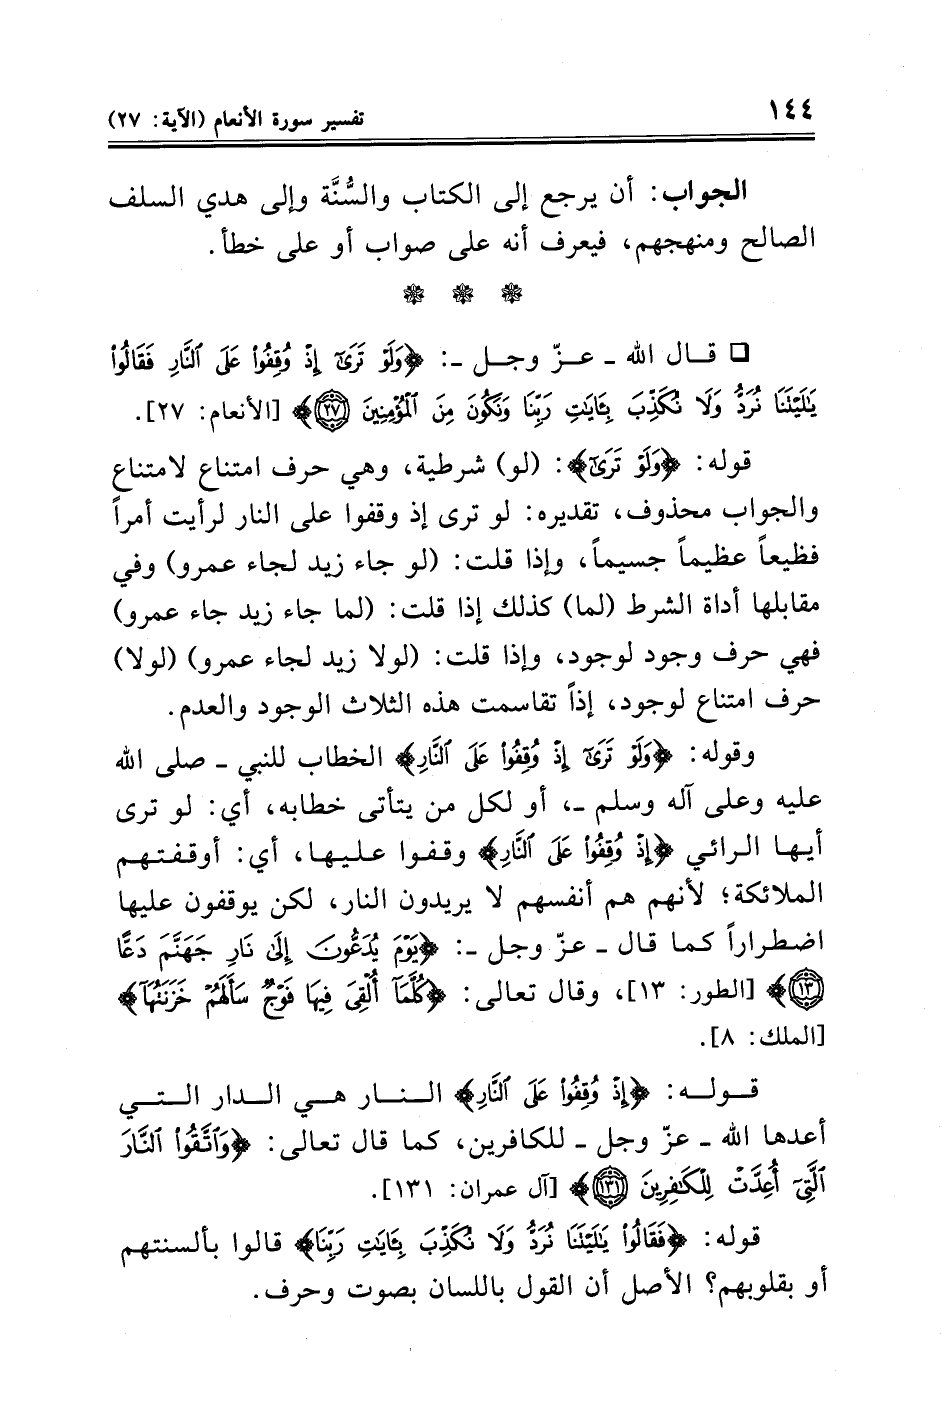 ١٤٤
تفسير سورة الأنعام (الآية: ٢٧)
الجواب: أن يرجع إلى الكتاب والسُّنَّة وإلى هدي السلف
الصالح ومنهجهم، فيعرف أنه على صواب أو على خطأ.
❁ ❁ ❁
❏ قال الله ـ عزّ وجل ـ: ﴿وَلَوْ تَرَىٰٓ إِذْ وُقِفُوا۟ عَلَى ٱلنَّارِ فَقَالُوا۟
يَٰلَيْتَنَا نُرَدُّ وَلَا نُكَذِّبَ بِـَٔايَٰتِ رَبِّنَا وَنَكُونَ مِنَ ٱلْمُؤْمِنِينَ ۝٢٧﴾ [الأنعام: ٢٧].
قوله: ﴿وَلَوْ تَرَىٰٓ﴾: (لو) شرطية، وهي حرف امتناع لامتناع
والجواب محذوف، تقديره: لو ترى إذ وقفوا على النار لرأيت أمراً
فظيعاً عظيماً جسيماً، وإذا قلت: (لو جاء زيد لجاء عمرو) وفي
مقابلها أداة الشرط (لما) كذلك إذا قلت: (لما جاء زيد جاء عمرو)
فهي حرف وجود لوجود، وإذا قلت: (لولا زيد لجاء عمرو) (لولا)
حرف امتناع لوجود، إذاً تقاسمت هذه الثلاث الوجود والعدم.
وقوله: ﴿وَلَوْ تَرَىٰٓ إِذْ وُقِفُوا۟ عَلَى ٱلنَّارِ﴾ الخطاب للنبي ـ صلى الله
عليه وعلى آله وسلم ـ، أو لكل من يتأتى خطابه، أي: لو ترى
أيها الرائي ﴿إِذْ وُقِفُوا۟ عَلَى ٱلنَّارِ﴾ وقفوا عليها، أي: أوقفتهم
الملائكة؛ لأنهم هم أنفسهم لا يريدون النار، لكن يوقفون عليها
اضطراراً كما قال ـ عزّ وجل ـ: ﴿يَوْمَ يُدَعُّونَ إِلَىٰ نَارِ جَهَنَّمَ دَعًّا
۝١٣﴾ [الطور: ١٣]، وقال تعالى: ﴿كُلَّمَآ أُلْقِىَ فِيهَا فَوْجٌ سَأَلَهُمْ خَزَنَتُهَآ﴾
[الملك: ٨].
قوله: ﴿إِذْ وُقِفُوا۟ عَلَى ٱلنَّارِ﴾ النار هي الدار التي
أعدها الله ـ عزّ وجل ـ للكافرين، كما قال تعالى: ﴿وَٱتَّقُوا۟ ٱلنَّارَ
ٱلَّتِىٓ أُعِدَّتْ لِلْكَٰفِرِينَ ۝١٣١﴾ [آل عمران: ١٣١].
قوله: ﴿فَقَالُوا۟ يَٰلَيْتَنَا نُرَدُّ وَلَا نُكَذِّبَ بِـَٔايَٰتِ رَبِّنَا﴾ قالوا بألسنتهم
أو بقلوبهم؟ الأصل أن القول باللسان بصوت وحرف.